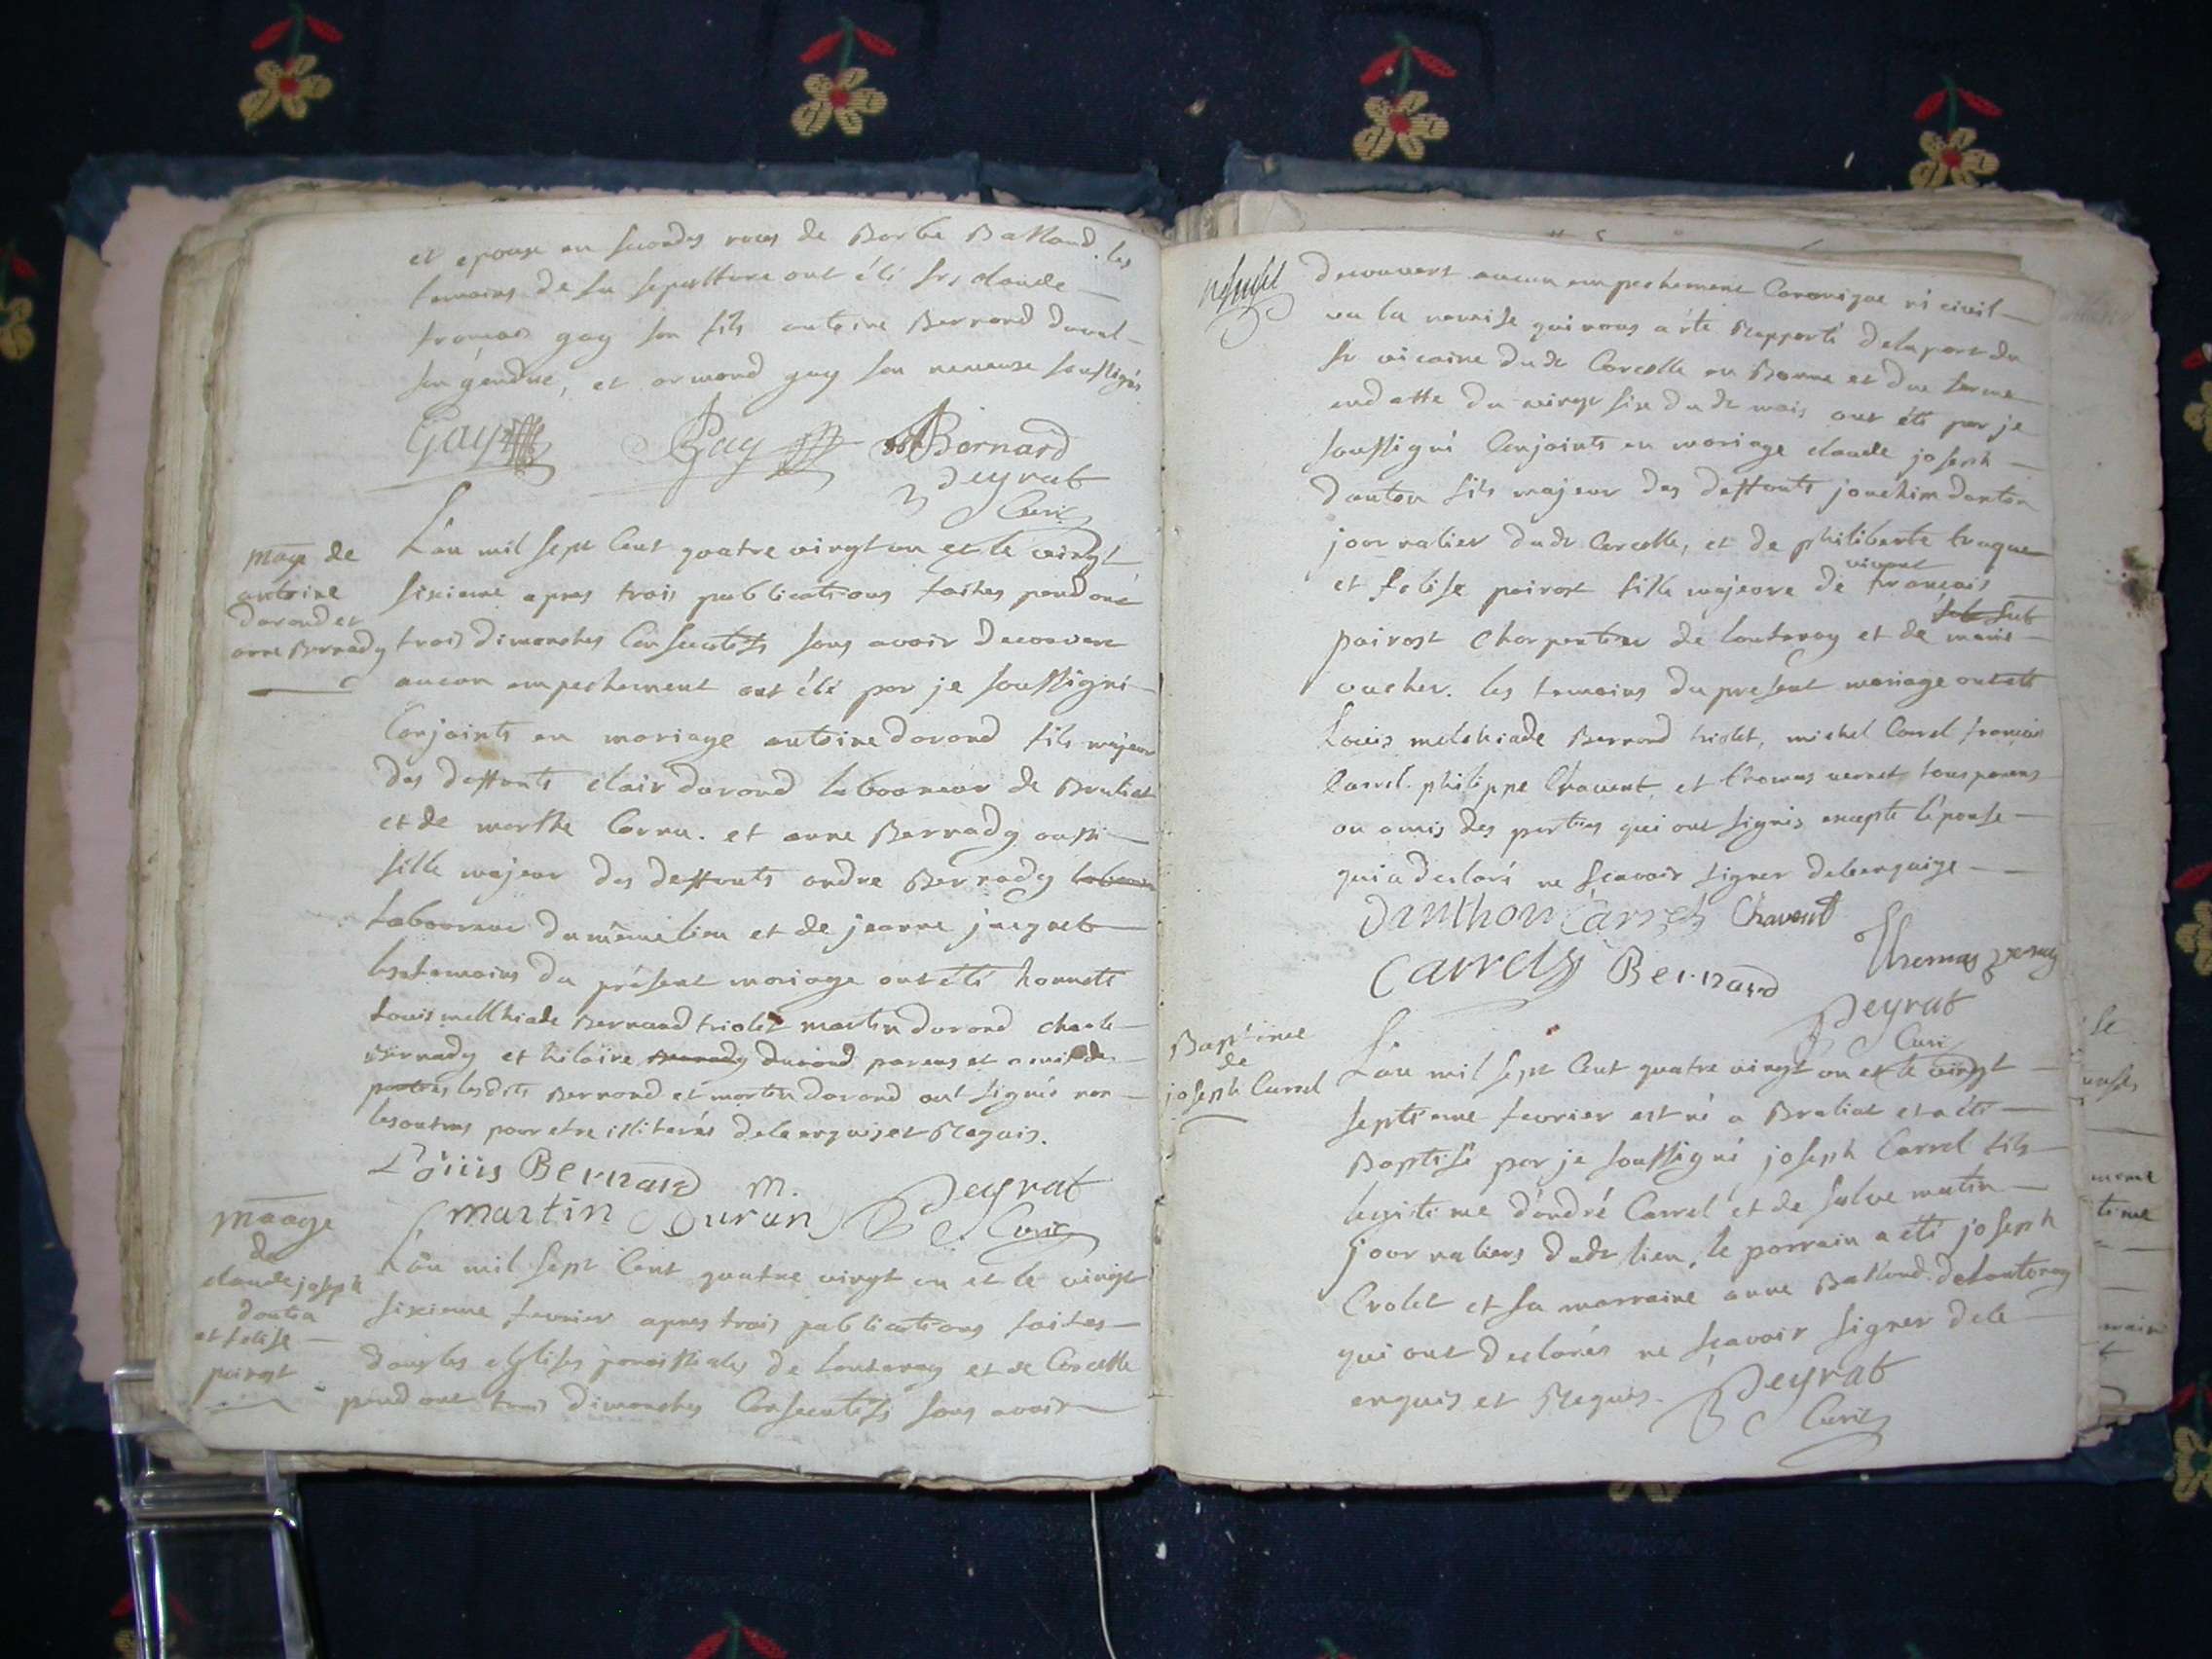 et epouse en secondes noces de Barbe Balland. les
temoins de sa sepulture ont été srs claude
francois gay son fils antoine Bernard duval
son gendre, et armand gay son neveux soussignés
Gay Gay Bernard
Peyrat
Curé
Mage de
antoine
durand et
anne Bernady
L'an mil sept cent quatre vingt un et le vingt
sixieme apres trois publications faites pendant
trois dimanches consecutifs sans avoir decouvert
aucun empechement ont été par je soussigné
conjoints en mariage antoine durand fils majeur
des deffunts clair durand laboureur de Bruliat
et de marthe Cornu. et anne Bernady aussi
fille majeur des deffunts andre Bernady
laboureur du même lieu et de jeanne jacquet
les temoins du présent mariage ont été honnete
Louis melkhiade Bernard triolet martin durand charle
Bernady et hilaire Bernady durand parens et amis des
parties lesdits Bernard et martin durand ont signés non
les autres pour etre illiterés de le enquis et Requis.
Loüis Bernard m.
martin Duran Peyrat
Curé
Maage
de
claude joseph
danton
et felise
poirost
L'an mil sept cent quatre vingt un et le vingt
sixieme fevrier apres trois publications faites
dans les eglises paroissiales de Lantenay et de Corcelle
pendant trois dimanches consecutifs sans avoir
decouvert aucun empechement Canonique ni civil
vu la remise qui nous a été Rapporté de la part du
sr vicaire dudt Corcelle en Bonne et due forme
en datte du vingt six dudt mois ont été par je
soussigné conjoints en mariage claude joseph
danton fils majeur des deffunts joachim danton
journalier dudt Corcelle, et de philiberte
et felise poirost fille majeure de vivant francois
poirost charpentier de lantenay et de marie
vucher. les temoins du present mariage ont été
Louis melchiade Bernard triolet, michel Carrel francois
Carrel philippe Chavent et thomas vernet tous parens
ou amis des parties qui ont signés excepté l'épouse
qui a declaré ne sçavoir signer de le enquise
Danthon Carrel Chavent
Carrel Bernard Thomas
Peyrat
Curé
Baptime
de
joseph Carrel
L'an mil sept cent quatre vingt un et le vingt
septieme fevrier est né a Bruliat et a été
Baptisé par je soussigné joseph Carrel fils
legitime d'andré Carrel et de
journaliers dudt lieu, le parrain a été joseph
Crolet et sa marraine anne Balland de lantenay
qui ont declarés ne sçavoir signer de le
enquis et Requis. Peyrat
Curé